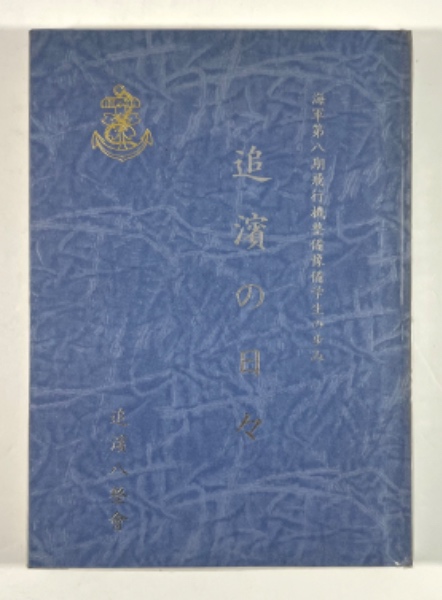 海軍第八期飛行機整備豫備学生の歩み
追濱の日々
追濱八期會